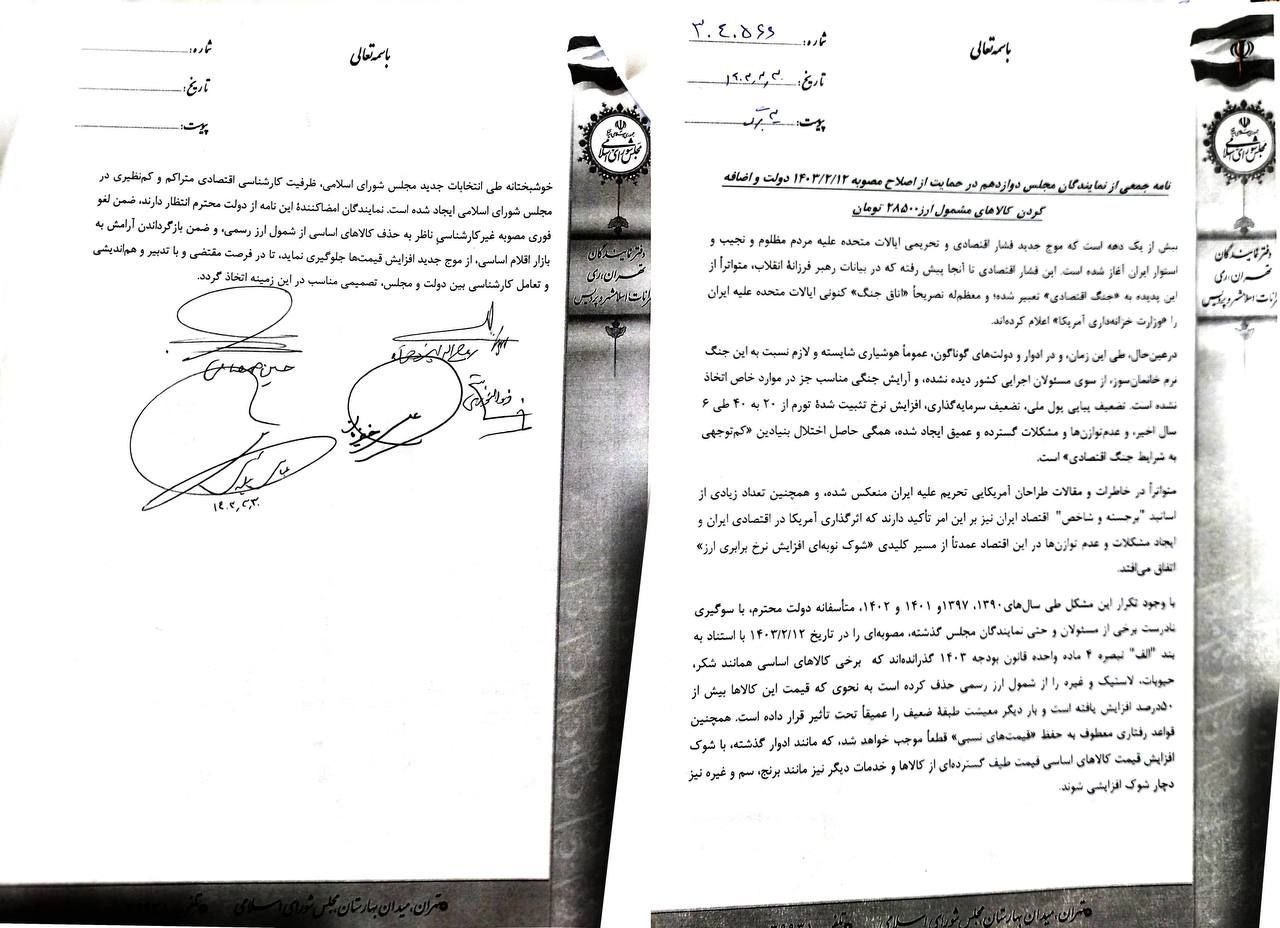 باسمه تعالی
شماره: ۳۰۴۰۵۶۶
تاریخ:
پیوست:
مجلس شورای اسلامی
دفتر نمایندگان
تهران، ری
نامه جمعی از نمایندگان مجلس دوازدهم در حمایت از اصلاح مصوبه ۱۴۰۳/۲/۱۲ دولت و اضافه
کردن کالاهای مشمول ارز ۲۸۵۰۰ تومان
بیش از یک دهه است که موج جدید فشار اقتصادی و تحریمی ایالات متحده علیه مردم مظلوم و نجیب و
استوار ایران آغاز شده است. این فشار اقتصادی تا آنجا پیش رفته که در بیانات رهبر فرزانهٔ انقلاب، متواتراً از
این پدیده به «جنگ اقتصادی» تعبیر شده؛ و معظم‌له تصریحاً «اتاق جنگ» کنونی ایالات متحده علیه ایران
را «وزارت خزانه‌داری آمریکا» اعلام کرده‌اند.
درعین‌حال، طی این زمان، و در ادوار و دولت‌های گوناگون، عموماً هوشیاری شایسته و لازم نسبت به این جنگ
نرم خانمان‌سوز، از سوی مسئولان اجرایی کشور دیده نشده، و آرایش جنگی مناسب جز در موارد خاص اتخاذ
نشده است. تضعیف پیاپی پول ملی، تضعیف سرمایه‌گذاری، افزایش نرخ تثبیت شدهٔ تورم از ۲۰ به ۴۰ طی ۶
سال اخیر، و عدم‌توازن‌ها و مشکلات گسترده و عمیق ایجاد شده، همگی حاصل اختلال بنیادین «کم‌توجهی
به شرایط جنگ اقتصادی» است.
متواتراً در خاطرات و مقالات طراحان آمریکایی تحریم علیه ایران منعکس شده، و همچنین تعداد زیادی از
اساتید "برجسته و شاخص" اقتصاد ایران نیز بر این امر تأکید دارند که اثرگذاری آمریکا در اقتصادی ایران و
ایجاد مشکلات و عدم توازن‌ها در این اقتصاد عمدتاً از مسیر کلیدی «شوک نوبه‌ای افزایش نرخ برابری ارز»
اتفاق می‌افتد.
با وجود تکرار این مشکل طی سال‌های ۱۳۹۰، ۱۳۹۷ و ۱۴۰۱ و ۱۴۰۲، متأسفانه دولت محترم، با سوگیری
نادرست برخی از مسئولان و حتی نمایندگان مجلس گذشته، مصوبه‌ای را در تاریخ ۱۴۰۳/۲/۱۲ با استناد به
بند "الف" تبصره ۴ ماده واحده قانون بودجه ۱۴۰۳ گذرانده‌اند که برخی کالاهای اساسی همانند شکر،
حبوبات، لاستیک و غیره را از شمول ارز رسمی حذف کرده است به نحوی که قیمت این کالاها بیش از
۵۰درصد افزایش یافته است و بار دیگر معیشت طبقهٔ ضعیف را عمیقاً تحت تأثیر قرار داده است. همچنین
قواعد رفتاری معطوف به حفظ «قیمت‌های نسبی» قطعاً موجب خواهد شد، که مانند ادوار گذشته، با شوک
افزایش قیمت کالاهای اساسی قیمت طیف گسترده‌ای از کالاها و خدمات دیگر نیز مانند برنج، سم و غیره نیز
دچار شوک افزایشی شوند.
تهران، میدان بهارستان، مجلس شورای اسلامی
باسمه تعالی
شماره:
تاریخ:
پیوست:
مجلس شورای اسلامی
دفتر نمایندگان
تهران، ری
خوشبختانه طی انتخابات جدید مجلس شورای اسلامی، ظرفیت کارشناسی اقتصادی متراکم و کم‌نظیری در
مجلس شورای اسلامی ایجاد شده است. نمایندگان امضاکنندهٔ این نامه از دولت محترم انتظار دارند، ضمن لغو
فوری مصوبه غیرکارشناسیِ ناظر به حذف کالاهای اساسی از شمول ارز رسمی، و ضمن بازگرداندن آرامش به
بازار اقلام اساسی، از موج جدید افزایش قیمت‌ها جلوگیری نماید، تا در فرصت مقتضی و با تدبیر و هم‌اندیشی
و تعامل کارشناسی بین دولت و مجلس، تصمیمی مناسب در این زمینه اتخاذ گردد.
تهران، میدان بهارستان، مجلس شورای اسلامی